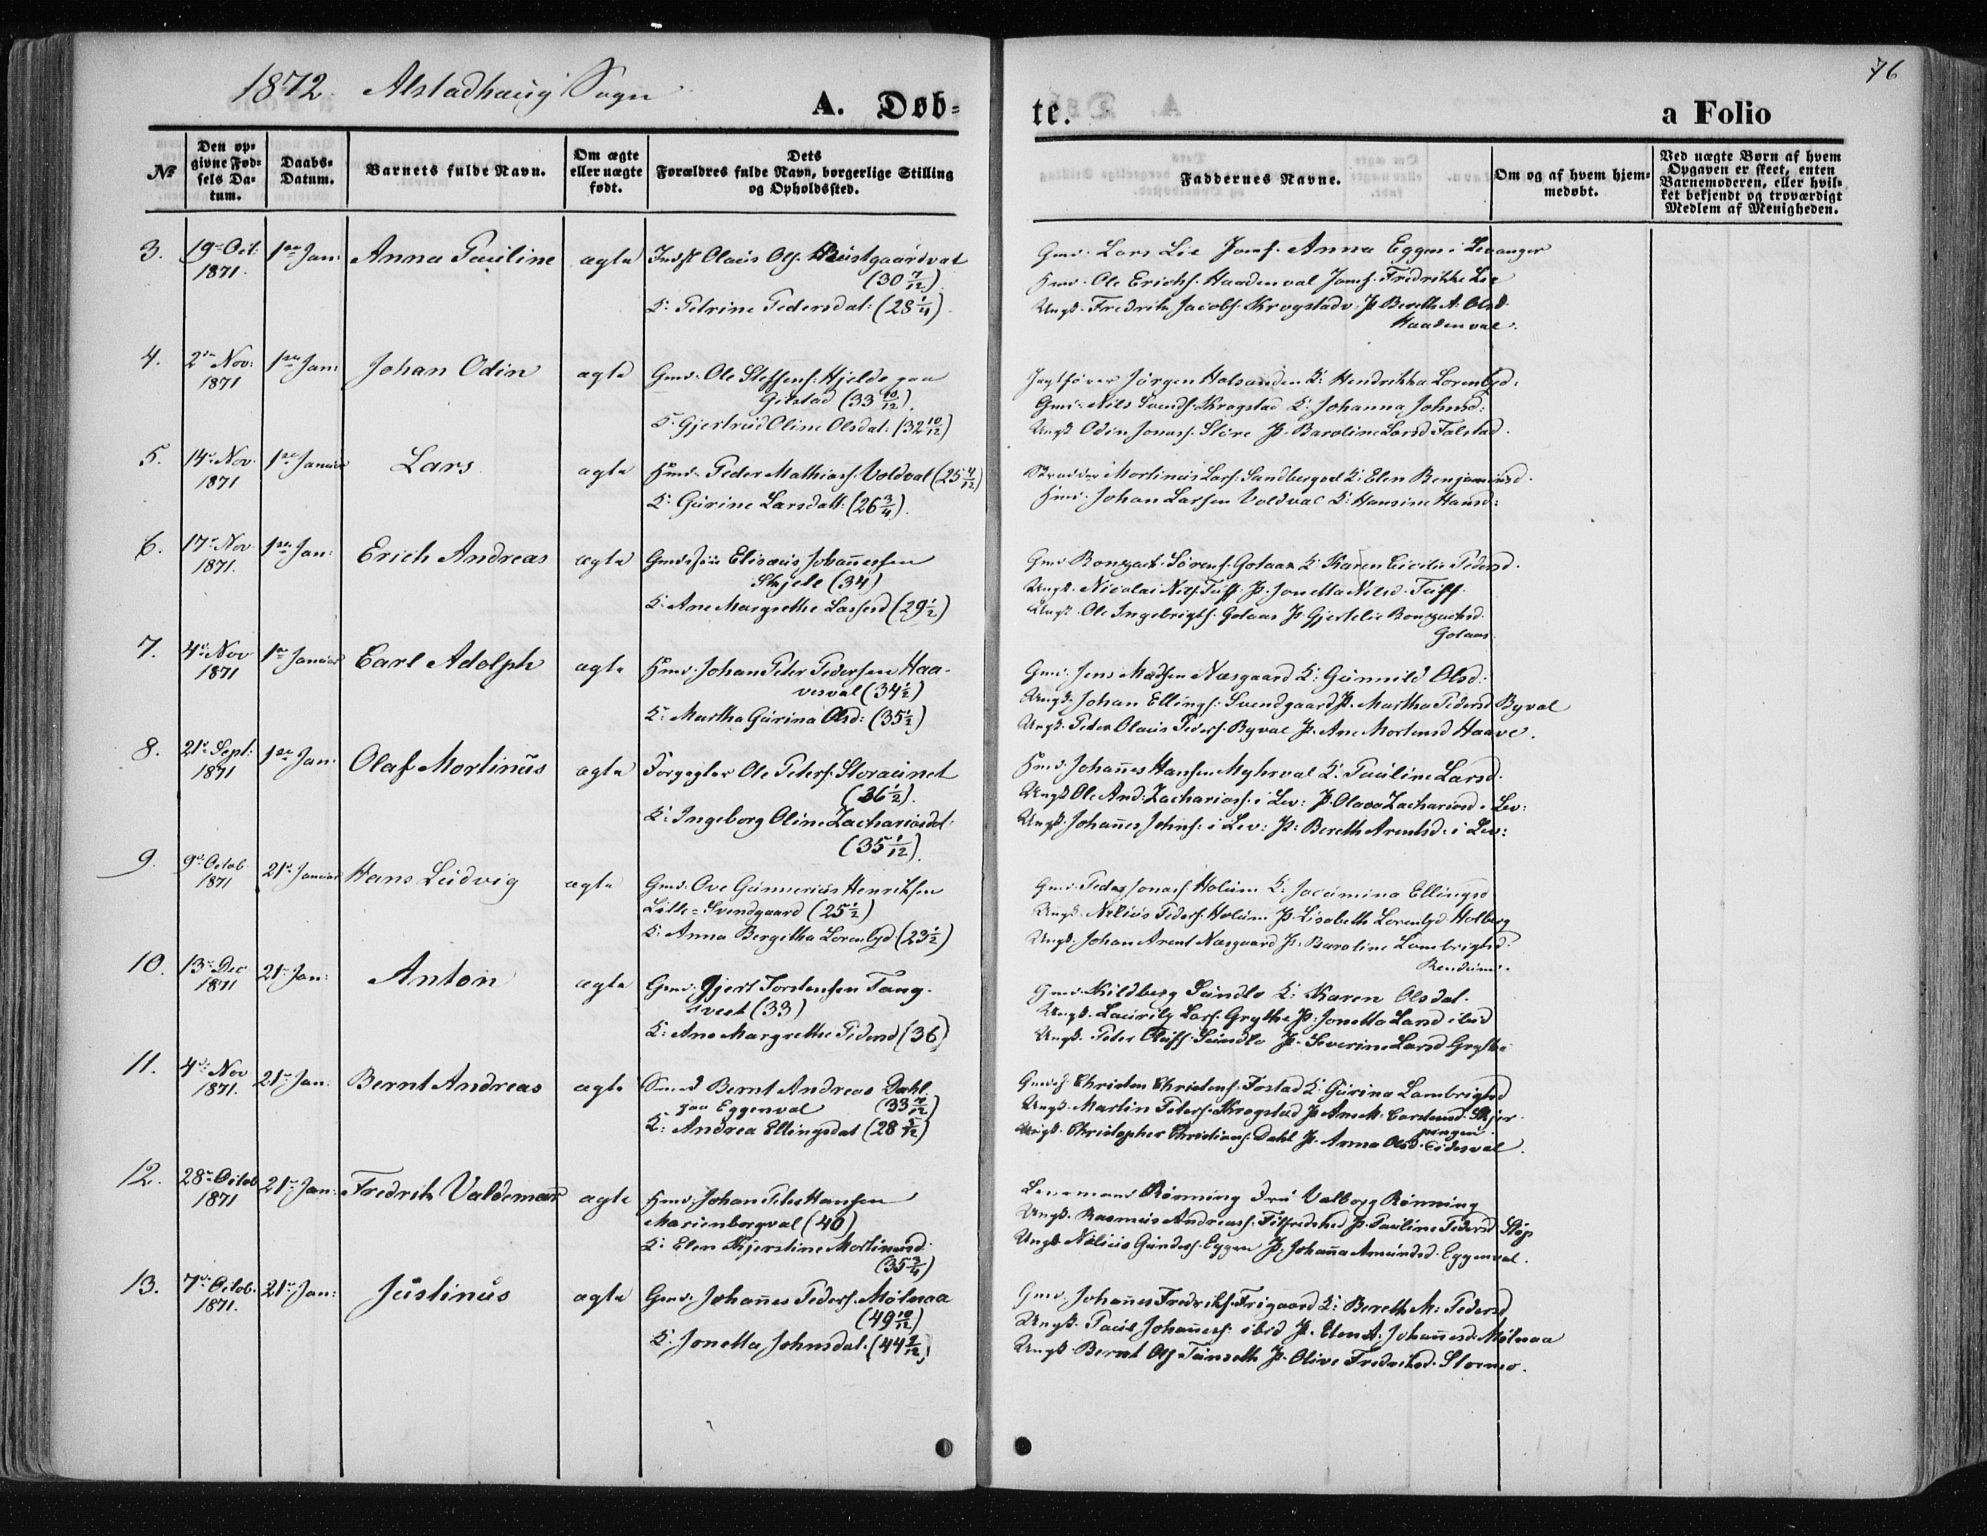 1872. Alstadhaug Sogn
76
A. Døb=
te.
a Folio
No
Den op=
givne Fød=
sels Da=
tum.
Daabs=
Datum.
Barnets fulde Navn.
Om ægte
eller uægte
født.
Dets
Forældres fulde Navn, borgerlige Stilling
og Opholdssted.
Faddernes Navne.
Om og af hvem hjem=
medøbt.
Ved uægte Børn af hvem
Opgaven er skeet, enten
Barnemoderen, eller hvil=
ket bekjendt og troværdigt
Medlem af Menigheden.
3. 19de Oct: 1871. 1ste Jan: Anna Pauline ægte Indst Olaus Ols.
(30 7/12)
K: Petrine Pedersdat: (28 1/4).
Gmd. Lars Lie Jomf. Anna Eggen i Levanger
Hmd. Ole Erichs. Haadenval Jomf. Fredrikke Lie
Ungk. Fredrik Jacobs. Krogstadv P. Bereth A. Olsd.
Haadenval.
4. 2den Nov: 1871 1ste Jan: Johan Odin ægte Gmd. Ole Steffens. Hjelde paa
Gilstad (33 10/12).
K. Gjertrud Oline Olsdat: (32 10/12)
Jørgen Holsanden K: Hendrikka Lorentsd:
Gmd. Nils Svends. Krogstad K. Johanna Johnsd:
Ungk Odin Jonass. Støre P. Baroline Larsd Falstad.
5. 14de Nov. 1871 1ste Januar Lars. ægte Hmd. Peder Mathiass. Voldval (25 4/12)
K. Gurine Larsdatt: (26 3/4).
Martinus Lars. K: Elen Benjaminsd.
Hmd. Johan Larsen Voldval K: Hansine Hansd:
6. 17de Nov 1871. 1ste Jan: Erich Andreas ægte Elisæus Johannessen
(34)
K: Ane Margrethe Lassesd (29 1/2)
Gmd Sørens. Golaas K: Karen Cicilie Pedersd.
Ungk. Nicolai Nils. Tuff P. Jonetta Nilsd. Tuff.
Ungk. Ole Ingebrigts. Golaas P.
Golaas
7. 4de Nov 1871 1ste Januar Carl Adolph ægte Hmd. Johan Peter Pedersen Haa-
vesval (34 1/2)
K: Martha Gurina Olsd: (35 1/2)
Gmd. Jens Madsen Næsgaard K: Gunnild Olsd:
Ungk. Johan Ellings. Svendgaard P. Martha Pedersd Byval
Ungk. Peter Olaus Peders. Byval P. Ane Mortensd Haave.
8. 21de Sept: 1871 1ste Jan: Olaf Martinus ægte Ole Peters. Storaunet
(36 1/2).
K: Ingeborg Oline Zachariasdt.
(35 1/12).
Hmd. Johannes Hansen Myhrval K: Pauline Larsd.
Ungk Ole And: Zachariass. i Lev: P. Olava Zachariasd. Lev:
Ungk. Johannes Johns: i Lev: P: Bereth Arentsd: i Lev:
9. 9de Octob 1871 21de Januar Hans Ludvig ægte Gmd. Ove Gunnerius Henriksen
Lille=Svendgaard (25 1/2)
K: Anna Bergitha Lorentsd (23 1/2)
Gmd. Peder Jonass. Holum K: Jacomina Ellingsd
Ungk. Peders. Holum P. Lisabeth Lorentsd Holberg
Ungk. Johan Arent Næsgaard P: Baroline Lambrigtsd.
10. 13de Dec. 1871 21de Jan: Anton ægte Gmd. Gjert Torstensen Tang-
tvedt (33)
K: Ane Margrethe Pedersd (36)
Gmd. Kildberg Sundlo K: Karen Olsdat.
Ungk. Lauritz Lars. Grythe P: Jonetta Larsd ibid
Ungk. Peter Olufs. Sundlo P. Severine Larsd Grythe
11. 4de Nov 1871. 21de Jan: Bernt Andreas ægte Smed Bernt Andreas Dahl
paa Eggenval (33 7/12)
K: Andrea Ellingsdat (28 5/12)
Christen Christens. Fostad K: Gurina Lambrigtsd
Ungk. Martin Peters. Krogstad P. Ane M. Carstensd.
Ungk. Christopher Christians. Dahl P. Anna Olsd. Eidesval.
12. 28de Octob 1871 21de Jan: Fredrik Valdemar ægte Hmd. Johan Peter Hansen
Marienborgval (40)
K: Elen Kjerstine Martinusd.
(35 3/4)
Lensmand Rønning Fru Valborg Rønning
Ungk. Rasmus Andreass. P. Pauline Pedersd Støp
Ungk Gunders. Eggen P. Johanna Amundsd. Eggenval.
13. 7de Octob. 1871. 21de Jan: Justinus ægte Gmd. Johannes Peders. Mølnaa
(49 10/12)
K: Jonetta Johnsdat. (44 2/12)
Gmd. Johannes Fredriks. Frigaard K: Bereth M: Pedersd
Ungk. Paul Johanness: ibid P. Elen A. Johannesd. Mølnaa
Ungk. Bernt Ols Tunseth P. Olive Fredriksd. Stormo.